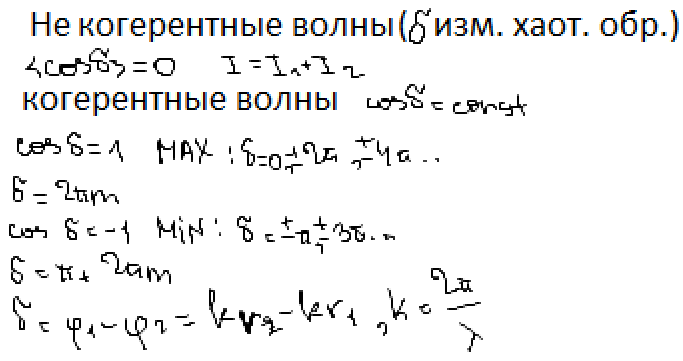 Не когерентные волны(δ изм. хаот. обр.)
<cosδ>=0 I=I₁+I₂
когерентные волны cosδ=const
cosδ=1 MAX: δ=0,±2π,±4π..
δ=2πm
cos δ=-1 MiN: δ=±π,±3π..
δ=π+2πm
δ=φ₁-φ₂=kr₂-kr₁, k=2π/λ